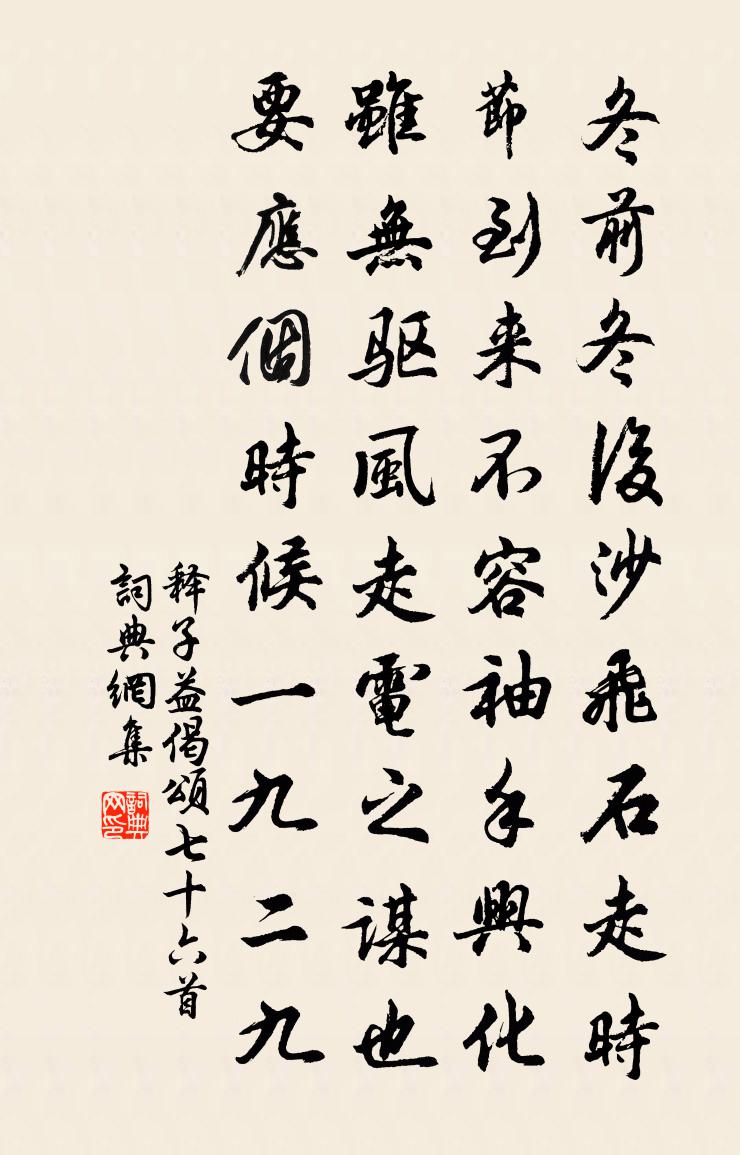 冬前冬後沙飛石走時
節到来不容袖手興化
雖無驱風走電之謀也
要應個時候一九二九
释子益偈頌七十六首
詞典網集
詞典网印